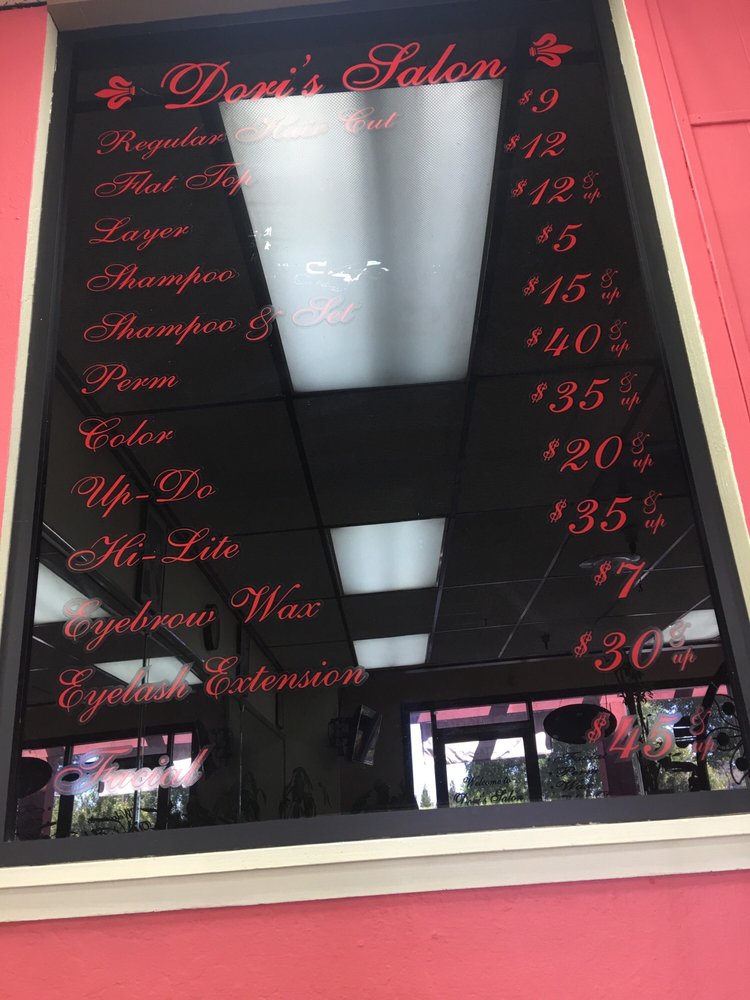 Dori's Salon
Regular Hair Cut $9
Flat Top $12
Layer $12 & up
Shampoo $5
Shampoo & Set $15 & up
Perm $40 & up
Color $35 & up
Up-Do $20 & up
Hi-Lite $35 & up
Eyebrow Wax $7
Eyelash Extension $30 & up
Facial $45 & up
Welcome
Dori's Salon